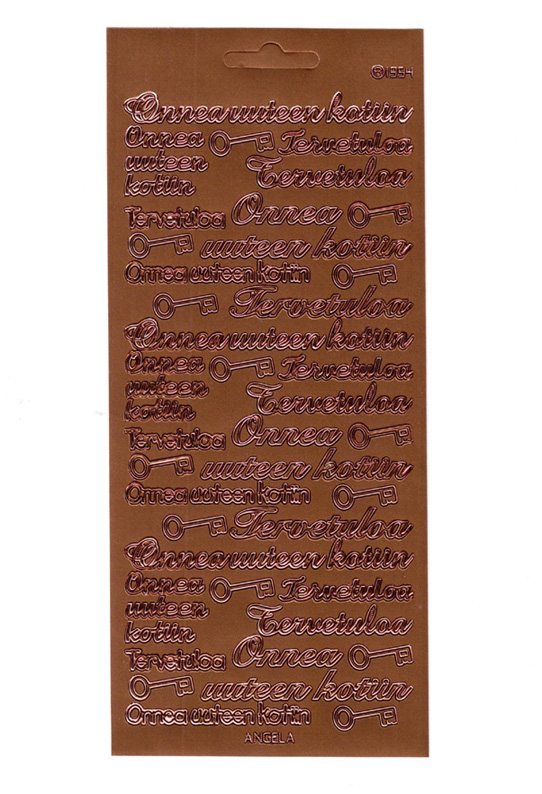 ®1554
Onnea uuteen kotiin
Onnea
uuteen
kotiin
Tervetuloa
Tervetuloa
Tervetuloa
Onnea
uuteen kotiin
Onnea uuteen kotiin
Tervetuloa
Onnea uuteen kotiin
Onnea
uuteen
kotiin
Tervetuloa
Tervetuloa
Tervetuloa
Onnea
uuteen kotiin
Onnea uuteen kotiin
Tervetuloa
Onnea uuteen kotiin
Onnea
uuteen
kotiin
Tervetuloa
Tervetuloa
Tervetuloa
Onnea
uuteen kotiin
Onnea uuteen kotiin
ANGELA